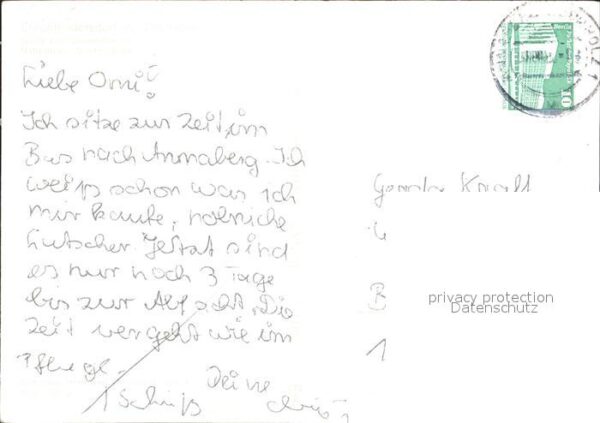 Liebe Omi!
Ich sitze zur Zeit im
Bus nach Annaberg. Ich
weiß schon was ich
mir kaufe,
Lutscher. Jetzt sind
es nur noch 3 Tage
bis zur Die
Zeit vergeht wie im
Pfluge.
Deine
Tschüß
Berlin
10
B
1
privacy protection
Datenschutz